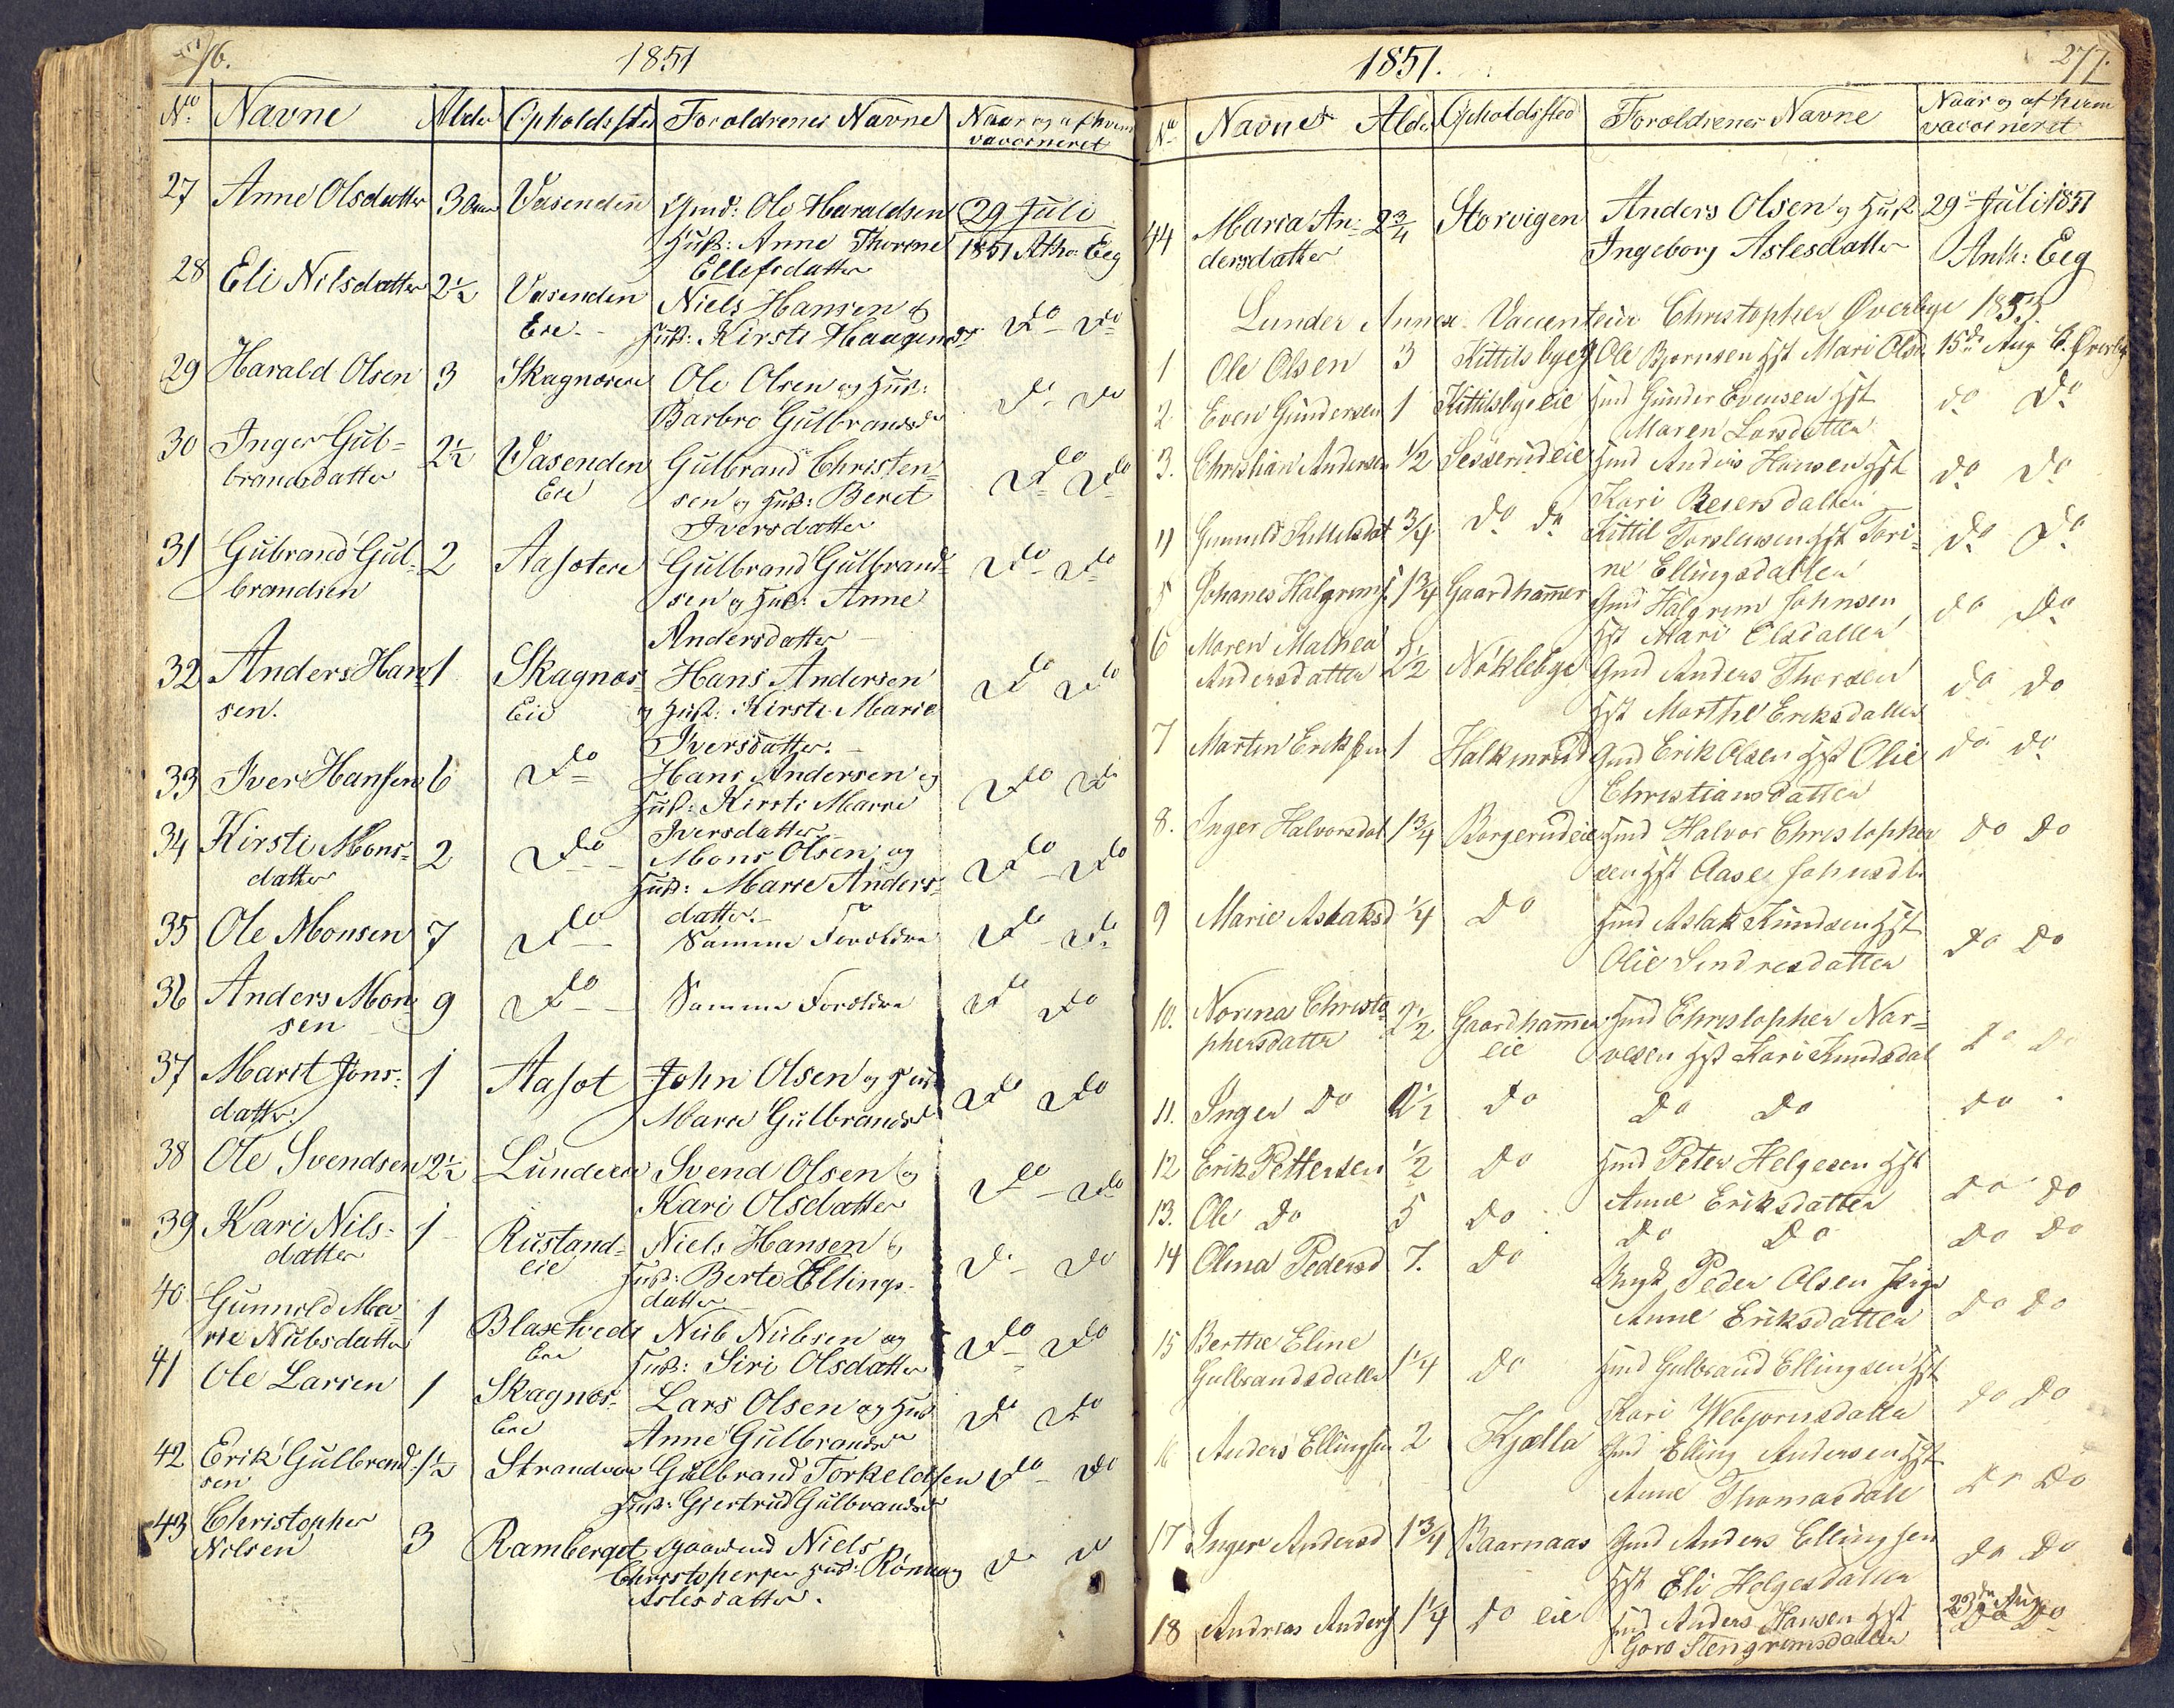 1851
No Navne Alder Opholdssted Forældrenes Navne Naar og af hvem
vaccineret
27 Anne Olsdatter 3 Aar Vasenden Gmd: Ole Haraldsen 29 Juli
Hust: Anne Thorine 1851 Ath: Eeg
Ellefsdatter
28 Eli Nilsdatter 2½ Vasenden Niels Hansen og
Eie Hust: Kirsti Haagensd Do Do
29 Harald Olsen 3 Skagnæseie Ole Olsen og Hust: Do Do
Barbro Gulbrandsd
30 Inger Gul- 2½ Vasenden Gulbrand Christen-
brandsdatter Eie sen og Hust: Beret Do Do
Iversdatter
31 Gubrand Gul- 2 Aasoteie Gulbrand Gulbrand- Do Do
brandsen sen og Hust: Anne
Andersdatter
32 Anders Han 1 Skagnæs Hans Andersen Do Do
sen. Eie og Hust: Kirsti Marie
Iversdatter.
33 Iver Hansen 6 Do Hans Andersen og Do Do
Hust: Kirsti Marie
Iversdatter
34 Kirsti Mons- 2 Do Mons Olsen og Do Do
datter Hust: Marie Anders-
datter.
35 Ole Monsen 7 Do Samme Forældre Do Do
36 Anders Mon- 9 Do Samme Forældre Do Do
sen
37 Marit Jons- 1 Aasot John Olsen og Hust Do Do
datter Marie Gulbrandsd
38 Ole Svendsen 2½ Lundeeie Svend Olsen og Do Do
Kari Olsdatter
39 Kari Nils- 1 Rustand- Niels Hansen og Do Do
datter eie Hust: Berte Ellings-
datter
40 Gunnild Ma- 1 Blaxtvedt Nub Nubsen og Do Do
rie Nubsdatter Eie Hust: Siri Olsdatter
41 Ole Larsen 1 Skagnæs- Lars Olsen og Hust Do Do
Eie Anne Gulbrandsd
42 Erik Gulbrand- ½ Strandeie Gulbrand Torkeldsen Do Do
sen Hust: Gjertrud Gulbrandsd
43 Christopher 3 Ramberget Gaardmd Niels Do Do
Nilsen Christophersen Hust: Rønnaug
Aslesdatter.
1851. 277.
No Navne Alder Opholdssted Forældrenes Navne Naar og af hvem
vaccineret
44 Maria An- 2¾ Storvigen Anders Olsen og Hust 29 Juli 1851
dersdatter Ingeborg Aslesdatter Anth: Eeg
Lunder Annex Vaccenteur Christopher Øverbye 1853
1 Ole Olsen 3 Kittilsbye Ole Bjørnsen Hst Mari Olsd 15de Aug C. Øverby
2 Even Gundersen 1 Kittilsbyeeie Hmd Gunder Evensen Hst Do Do
Maren Larsdatter
3. Christian Andersen ½ Sesserudeie Hmd Anders Hansen Hst Do Do
Kari Reiersdatter
Gunnild Kittilsdat ¾ Do Do Kittil Torstensen Hst Tori- Do Do
ne Ellingsdatter
5 Johanes Halgrims 1¾ Gaardhammer Gmd Halgrim Johnsen Do Do
Hst Mari Olsdatter
6 Maren Mathea 2½ Nøklebye Gmd Anders Thorsen Do Do
Andersdatter Hst Marthe Eriksdatter
7 Martin Eriksen 1 Halkinrud Gmd Erik Olsen Hst Olie Do Do
Christiansdatter
8. Inger Halvorsdat 1¾ Borgerudeie Hmd Halvor Christopher Do Do
sen Hst Aase Johnsdt
9 Marie Aslaksd ¼ Do Hmd Aslak Knudsen Hst Do Do
Olie Sindresdatter
10. Norina Christo- 2½ Gaardhammer Hmd Christopher Nar- Do Do
phersdatter eie vesen Hst Kari Knudsdat
11. Inger Do ½ Do Do Do Do
12 Erik Pettersen ½ Do Hmd Peter Helgesen Hst Do Do
Anne Eriksdatter
13. Ole Do 5 Do Do Do Do Do
14 Olina Pedersd 7. Do Ungk Peder Olsen Pige Do Do
Anne Eriksdatter
15 Berthe Eline Hmd Gulbrand Ellingsen Hst
Gulbrandsdatter 1¼ Do Kari Webjørnsdatter Do Do
16 Anders Ellingsen 2 Kjølla Gmd Elling Andersen Hst Do Do
Anne Thomasdatt
17 Inger Andersd 1¾ Baarnaas Gmd Anders Ellingsen Do Do
Hst Eli Helgesdatter
18 Andreas Anders 1¼ Do eie Hmd Anders Hansen Hst 23de Aug Do Do
Goro Stengrimsdatter